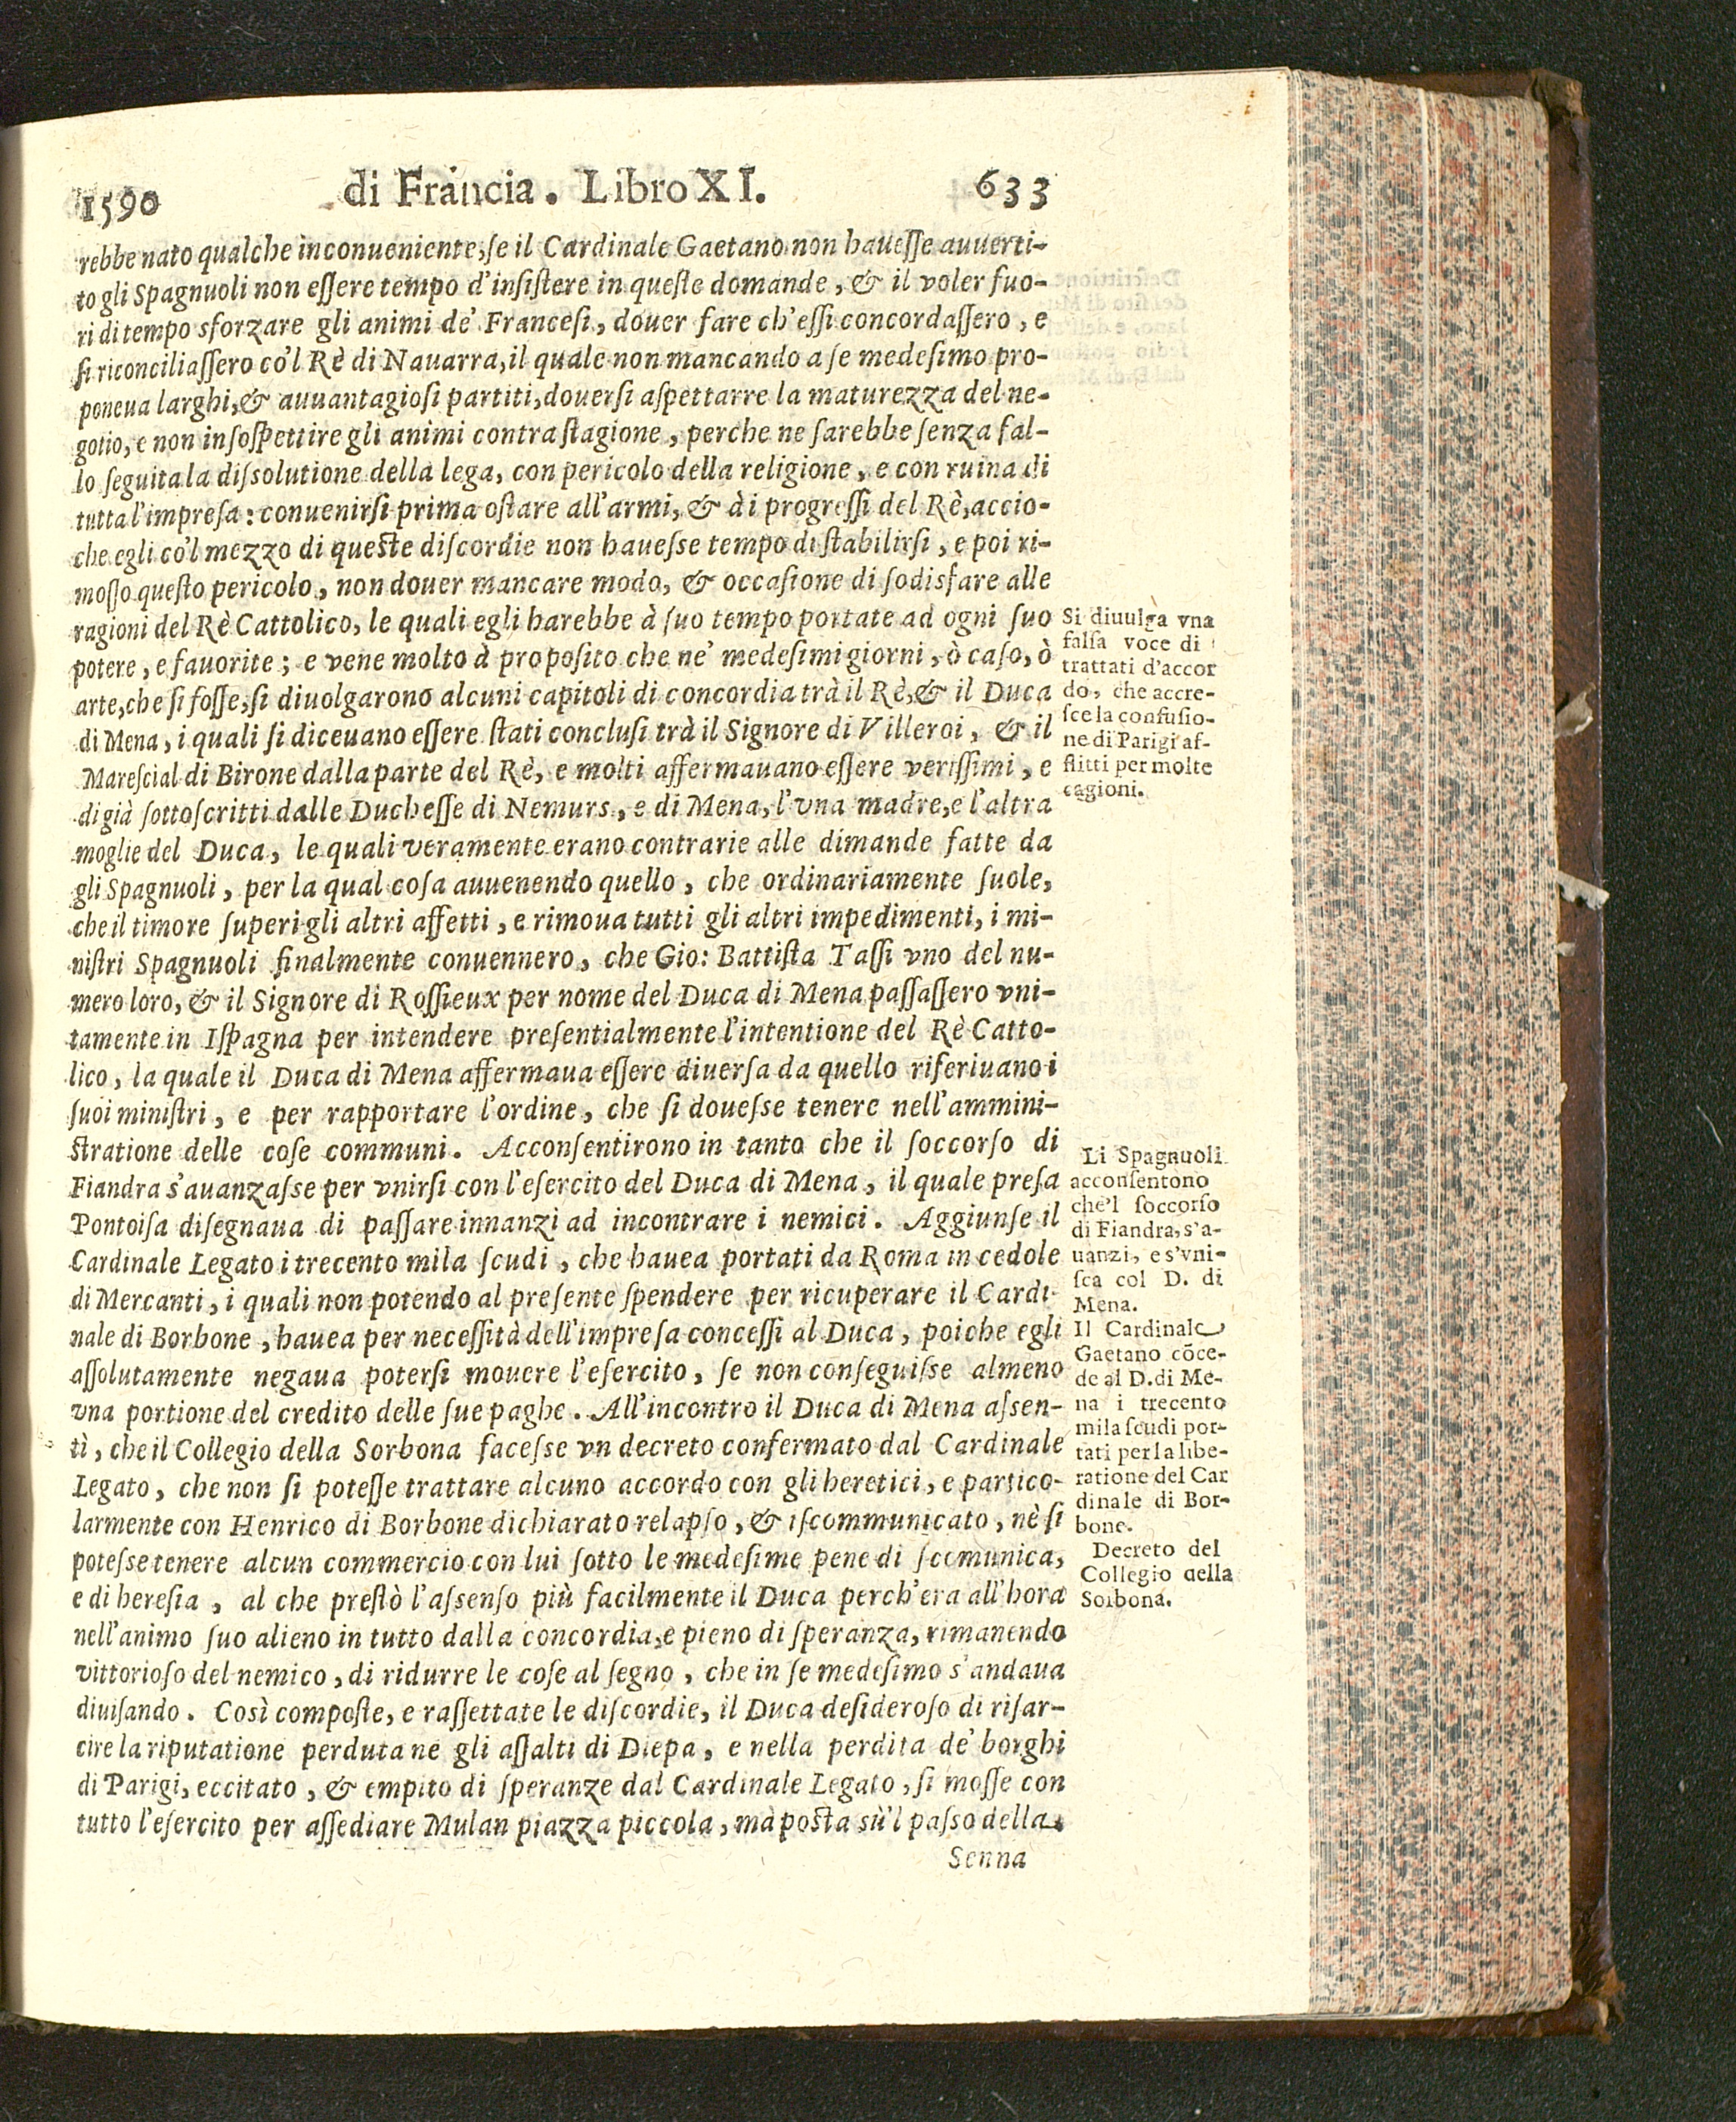 1590 di Francia. Libro XI. 633
rebbe nato qualche inconueniente, ſe il Cardinale Gaetano non haueſſe auuerti-
to gli Spagnuoli non eſſere tempo d'inſiſtere in queſte domande, & il voler fuo-
ri di tempo sforzare gli animi de' Franceſi, douer fare ch'eſſi concordaſſero, e
ſi riconciliaſſero co'l Rè di Nauarra, il quale non mancando a ſe medeſimo pro-
poneua larghi, & auuantagioſi partiti, douerſi aſpettarre la maturezza del ne-
gotio, e non inſoſpettire gli animi contra ſtagione, perche ne ſarebbe ſenza fal-
lo ſeguita la diſſolutione della lega, con pericolo della religione, e con ruina di
tutta l'impreſa: conuenirſi prima oſtare all'armi, & à i progreſſi del Rè, accio-
che egli co'l mezzo di queſte diſcordie non haueſse tempo di ſtabilirſi, e poi ri-
moſſo queſto pericolo, non douer mancare modo, & occaſione di ſodisfare alle
ragioni del Rè Cattolico, le quali egli harebbe à ſuo tempo portate ad ogni ſuo
potere, e fauorite; e vene molto à propoſito che ne' medeſimi giorni, ò caſo, ò
arte, che ſi foſſe, ſi diuolgarono alcuni capitoli di concordia trà il Rè, & il Duca
di Mena, i quali ſi diceuano eſſere ſtati concluſi trà il Signore di Villeroi, & il
Mareſcial di Birone dalla parte del Rè, e molti affermauano eſſere veriſſimi, e
di già ſottoſcritti dalle Ducheſſe di Nemurs, e di Mena, l'vna madre, e l'altra
moglie del Duca, le quali veramente erano contrarie alle dimande fatte da
gli Spagnuoli, per la qual coſa auuenendo quello, che ordinariamente ſuole,
che il timore ſuperi gli altri affetti, e rimoua tutti gli altri impedimenti, i mi-
niſtri Spagnuoli finalmente conuennero, che Gio: Battiſta Taſſi vno del nu-
mero loro, & il Signore di Roſſieux per nome del Duca di Mena paſſaſſero vni-
tamente in Iſpagna per intendere preſentialmente l'intentione del Rè Catto-
lico, la quale il Duca di Mena affermaua eſſere diuerſa da quello riferiuano i
ſuoi miniſtri, e per rapportare l'ordine, che ſi doueſse tenere nell'ammini-
ſtratione delle coſe communi. Acconſentirono in tanto che il ſoccorſo di
Fiandra s'auanzaſse per vnirſi con l'eſercito del Duca di Mena, il quale preſa
Pontoiſa diſegnaua di paſſare innanzi ad incontrare i nemici. Aggiunſe il
Cardinale Legato i trecento mila ſcudi, che hauea portati da Roma in cedole
di Mercanti, i quali non potendo al preſente ſpendere per ricuperare il Cardi-
nale di Borbone, hauea per neceſſità dell'impreſa conceſſi al Duca, poiche egli
aſſolutamente negaua poterſi mouere l'eſercito, ſe non conſeguiſse almeno
vna portione del credito delle ſue paghe. All'incontro il Duca di Mena aſsen-
tì, che il Collegio della Sorbona faceſse vn decreto confermato dal Cardinale
Legato, che non ſi poteſſe trattare alcuno accordo con gli heretici, e partico-
larmente con Henrico di Borbone dichiarato relapſo, & iſcommunicato, nè ſi
poteſse tenere alcun commercio con lui ſotto le medeſime pene di ſcomunica,
e di hereſia, al che preſtò l'aſsenſo più facilmente il Duca perch'era all'hora
nell'animo ſuo alieno in tutto dalla concordia, e pieno di ſperanza, rimanendo
vittorioſo del nemico, di ridurre le coſe al ſegno, che in ſe medeſimo s'andaua
diuiſando. Così compoſte, e raſſettate le diſcordie, il Duca deſideroſo di riſar-
cire la riputatione perduta ne gli aſſalti di Diepa, e nella perdita de' borghi
di Parigi, eccitato, & empito di ſperanze dal Cardinale Legato, ſi moſſe con
tutto l'eſercito per aſſediare Mulan piazza piccola, mà poſta sù'l paſso della
Senna
Si diuulga vna
falſa voce di
trattati d'accor
do, che accre-
ſce la confuſio-
ne di Parigi af-
flitti per molte
cagioni.
Li Spagnuoli
acconſentono
che'l ſoccorſo
di Fiandra, s'a-
uanzi, e s'vni-
ſca col D. di
Mena.
Il Cardinale
Gaetano cōce-
de al D. di Me-
na i trecento
mila ſcudi por-
tati per la libe-
ratione del Car
dinale di Bor-
bone.
Decreto del
Collegio della
Sorbona.